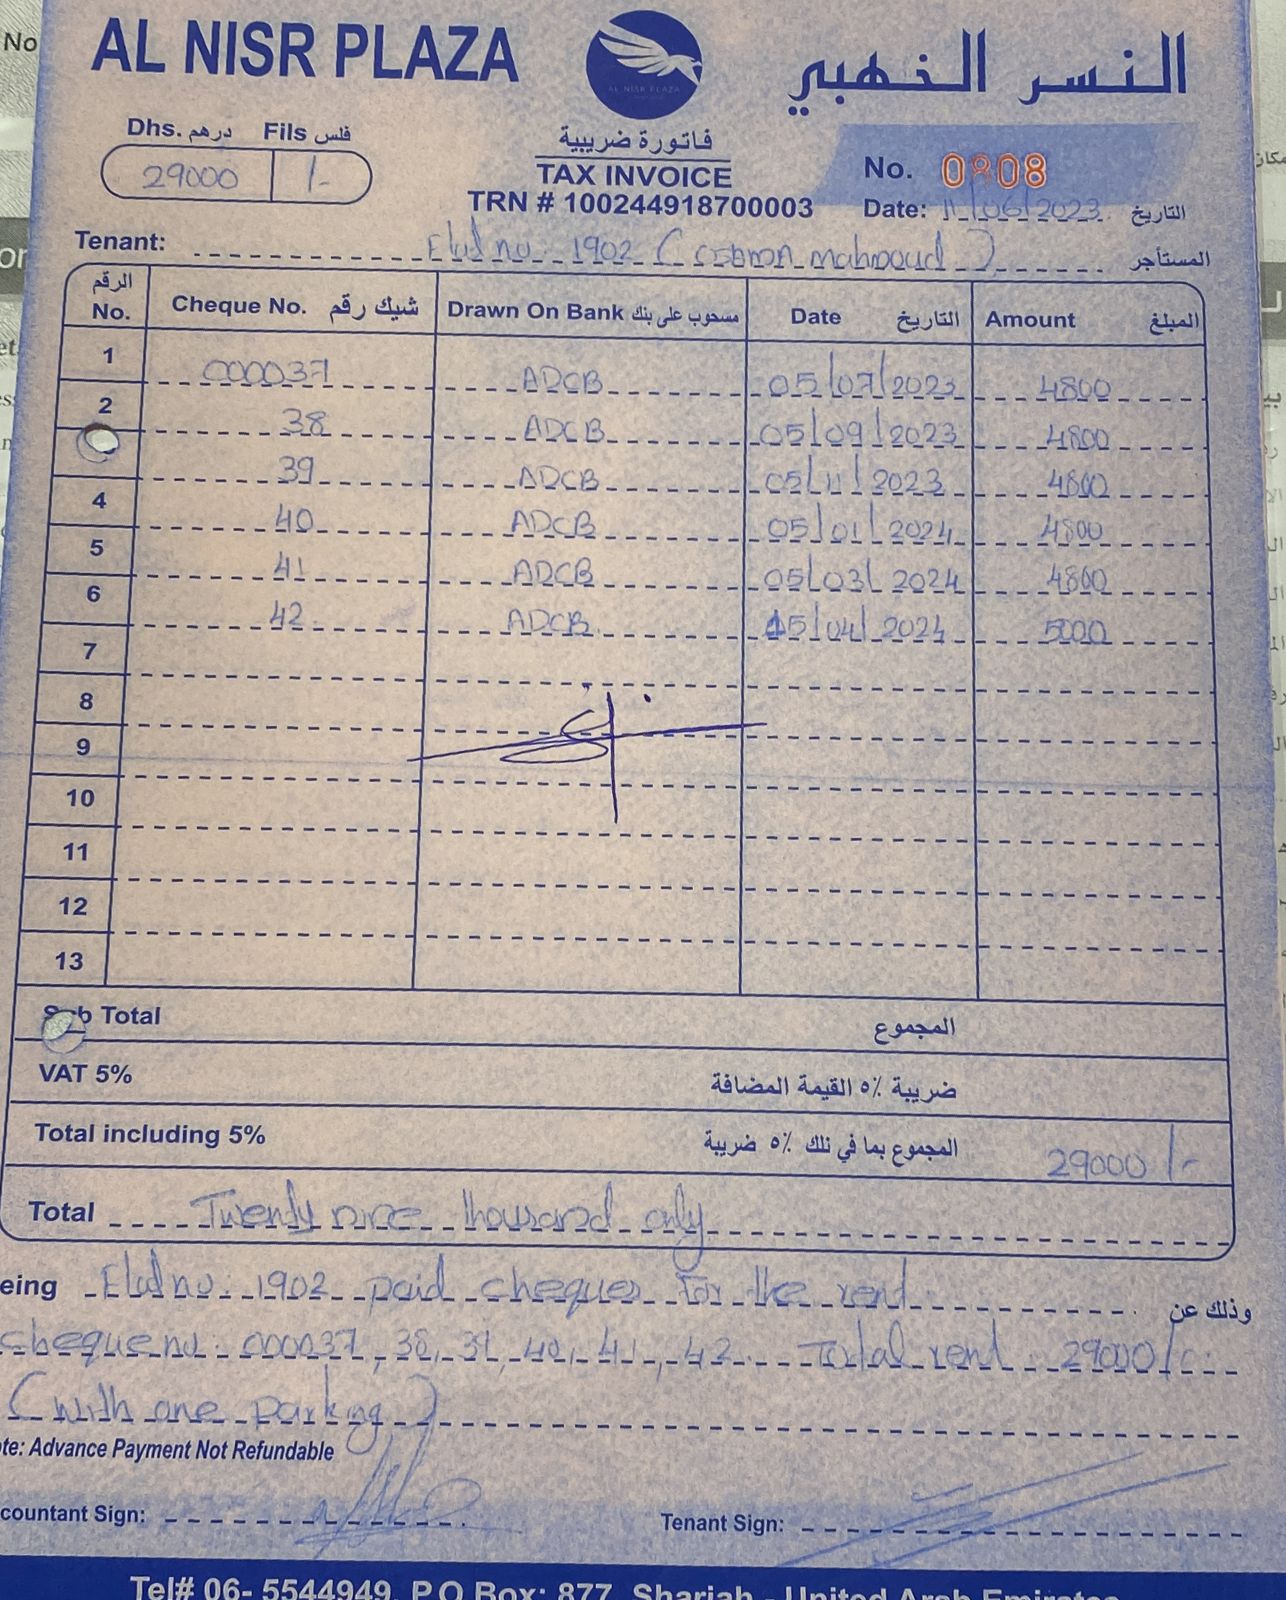 No
AL NISR PLAZA
النسر الذهبي
AL NISR PLAZA
Dhs. درهم Fils فلس
29000 /-
فاتورة ضريبية
TAX INVOICE
TRN # 100244918700003
No. 0808
Date: 11/06/2023 التاريخ
Tenant: Flat no. 1902 ( mahmoud ) المستأجر
الرقم No. Cheque No. شيك رقم Drawn On Bank مسحوب على بنك Date التاريخ Amount المبلغ
1 000037 ADCB 05/07/2023 4800
2 38 ADCB 05/09/2023 4800
39 ADCB 05/11/2023 4800
4 40 ADCB 05/01/2024 4800
5 41 ADCB 05/03/2024 4800
6 42 ADCB 15/04/2024 5000
7
8
9
10
11
12
13
Sub Total المجموع
VAT 5% ضريبة ٥٪ القيمة المضافة
Total including 5% المجموع بما في ذلك ٥٪ ضريبة 29000 /-
Total Twenty nine thousand only
eing Flat no. 1902 paid cheques for the rent وذلك عن
cheque no. 000037, 38, 39, 40, 41, 42 Total rent 29000/
(with one parking)
te: Advance Payment Not Refundable
countant Sign:
Tenant Sign:
Tel# 06- 5544949, P.O.Box: 877, Sharjah - United Arab Emirates